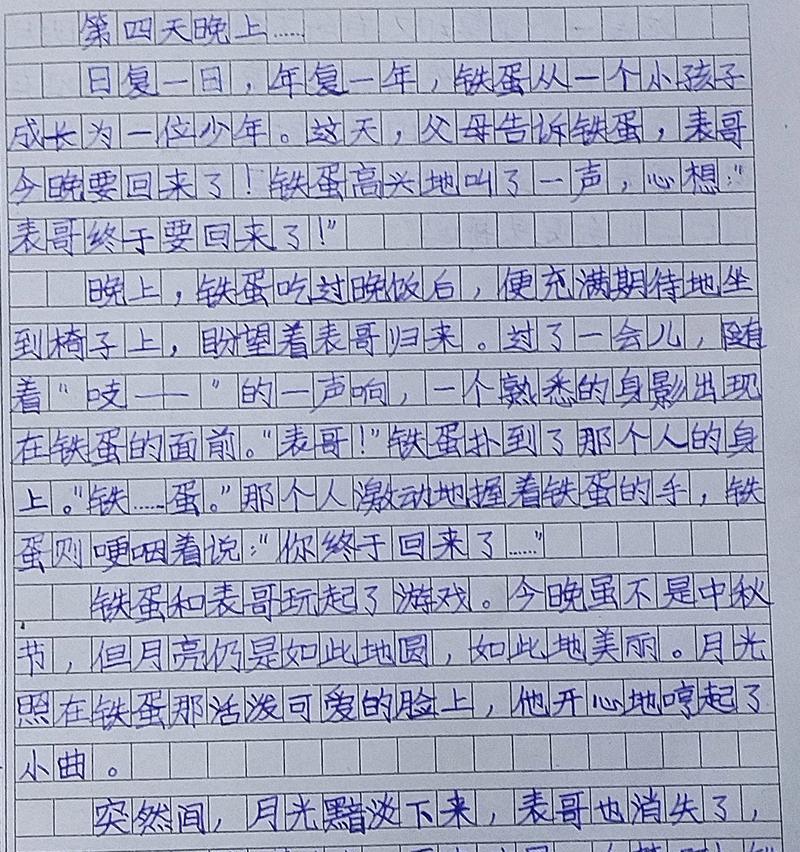 第四天晚上……
日复一日，年复一年，铁蛋从一个小孩子
成长为一位少年。这天，父母告诉铁蛋，表哥
今晚要回来了！铁蛋高兴地叫了一声，心想："
表哥终于要回来了！"
晚上，铁蛋吃过晚饭后，便充满期待地坐
到椅子上，盼望着表哥归来。过了一会儿，随
着"吱——"的一声响，一个熟悉的身影出现
在铁蛋的面前。"表哥！"铁蛋扑到了那个人的身
上。"铁……蛋。"那个人激动地握着铁蛋的手，铁
蛋则哽咽着说："你终于回来了……"
铁蛋和表哥玩起了游戏。今晚虽不是中秋
节，但月亮仍是如此地圆，如此地美丽。月光
照在铁蛋那活泼可爱的脸上，他开心地哼起了
小曲。
突然间，月光黯淡下来，表哥也消失了，